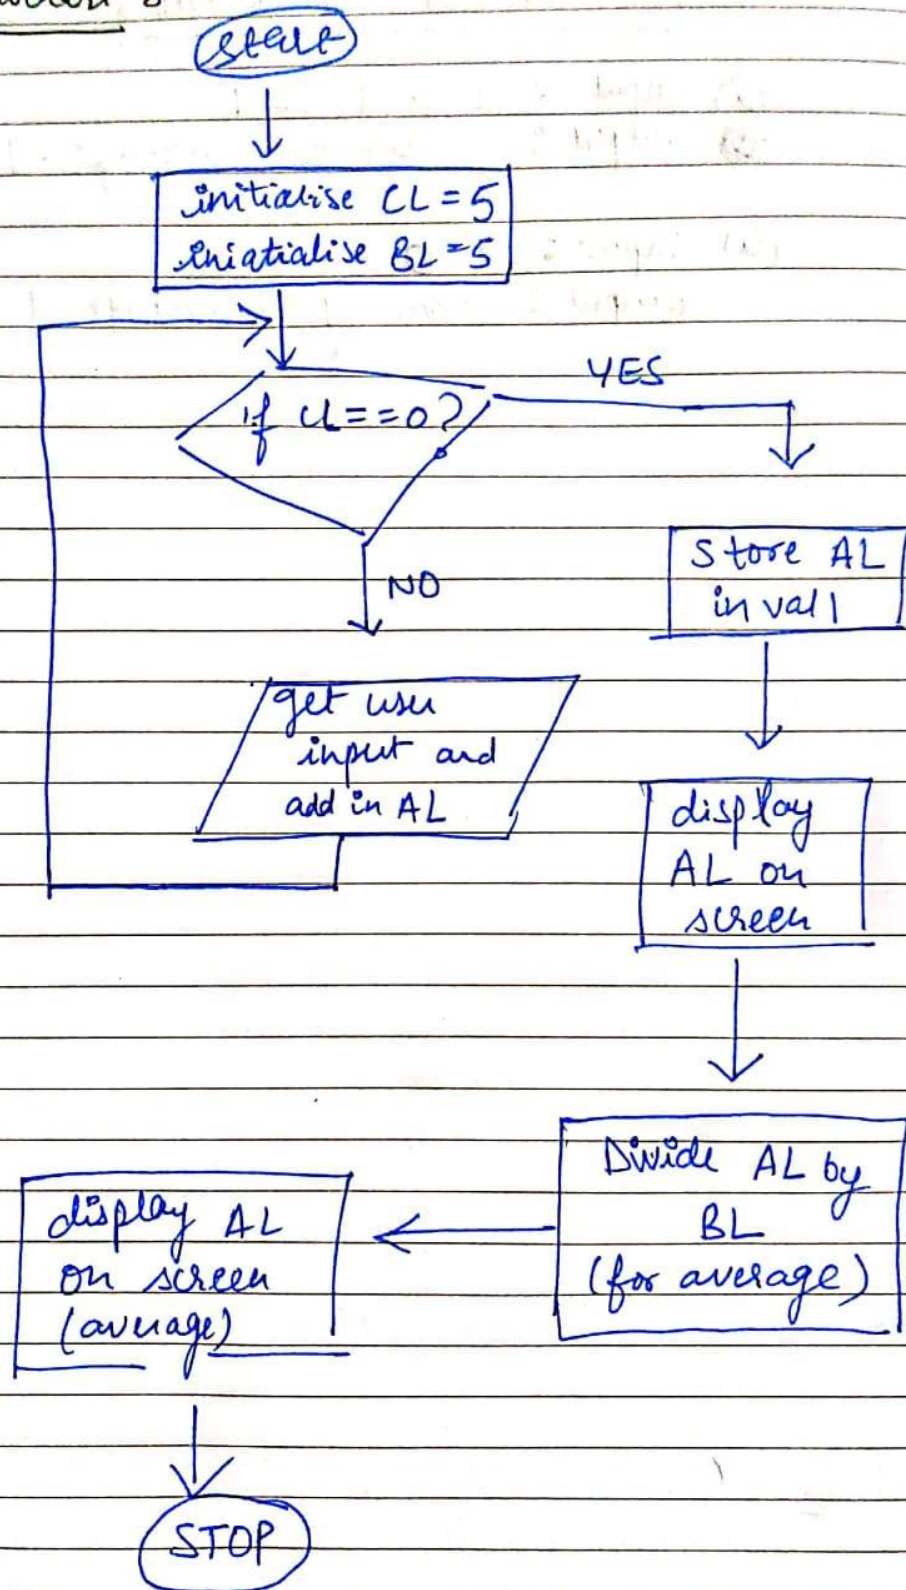 start
initialise CL = 5
iniatialise BL = 5
if CL == 0 ?
YES
NO
get user
input and
add in AL
Store AL
in val1
display
AL on
screen
Divide AL by
BL
(for average)
display AL
on screen
(average)
STOP